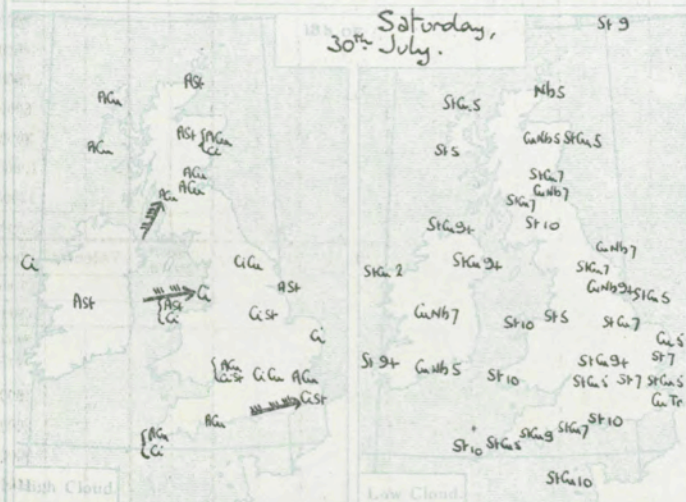 Saturday,
30th July.
ASt
ACu
ACu
ASt { ACu
Ci
ACu
ACu
ACu
Ci
CiCu
ASt
Ci
ASt
{ ASt
Ci
CiSt
Ci
{ ACu
CiSt
CiCu
ACu
CiSt
ACu
{ ACu
Ci
High Cloud.
St 9
StCu.5
Nb5
St5
CuNb5 StCu5
StCu7
CuNb7
StCu7
St 10
StCu9+
CuNb7
StCu 2
StCu 9+
StCu7
CuNb9+ StCu5
CuNb7
St10
St5
StCu7
Cu 5
St 9+
CuNb5
StCu9+
St7
St10
StCu5
St7
StCu5
CuTr
St10
StCu7
StCu9
StCu5
St10
StCu10
Low Cloud.